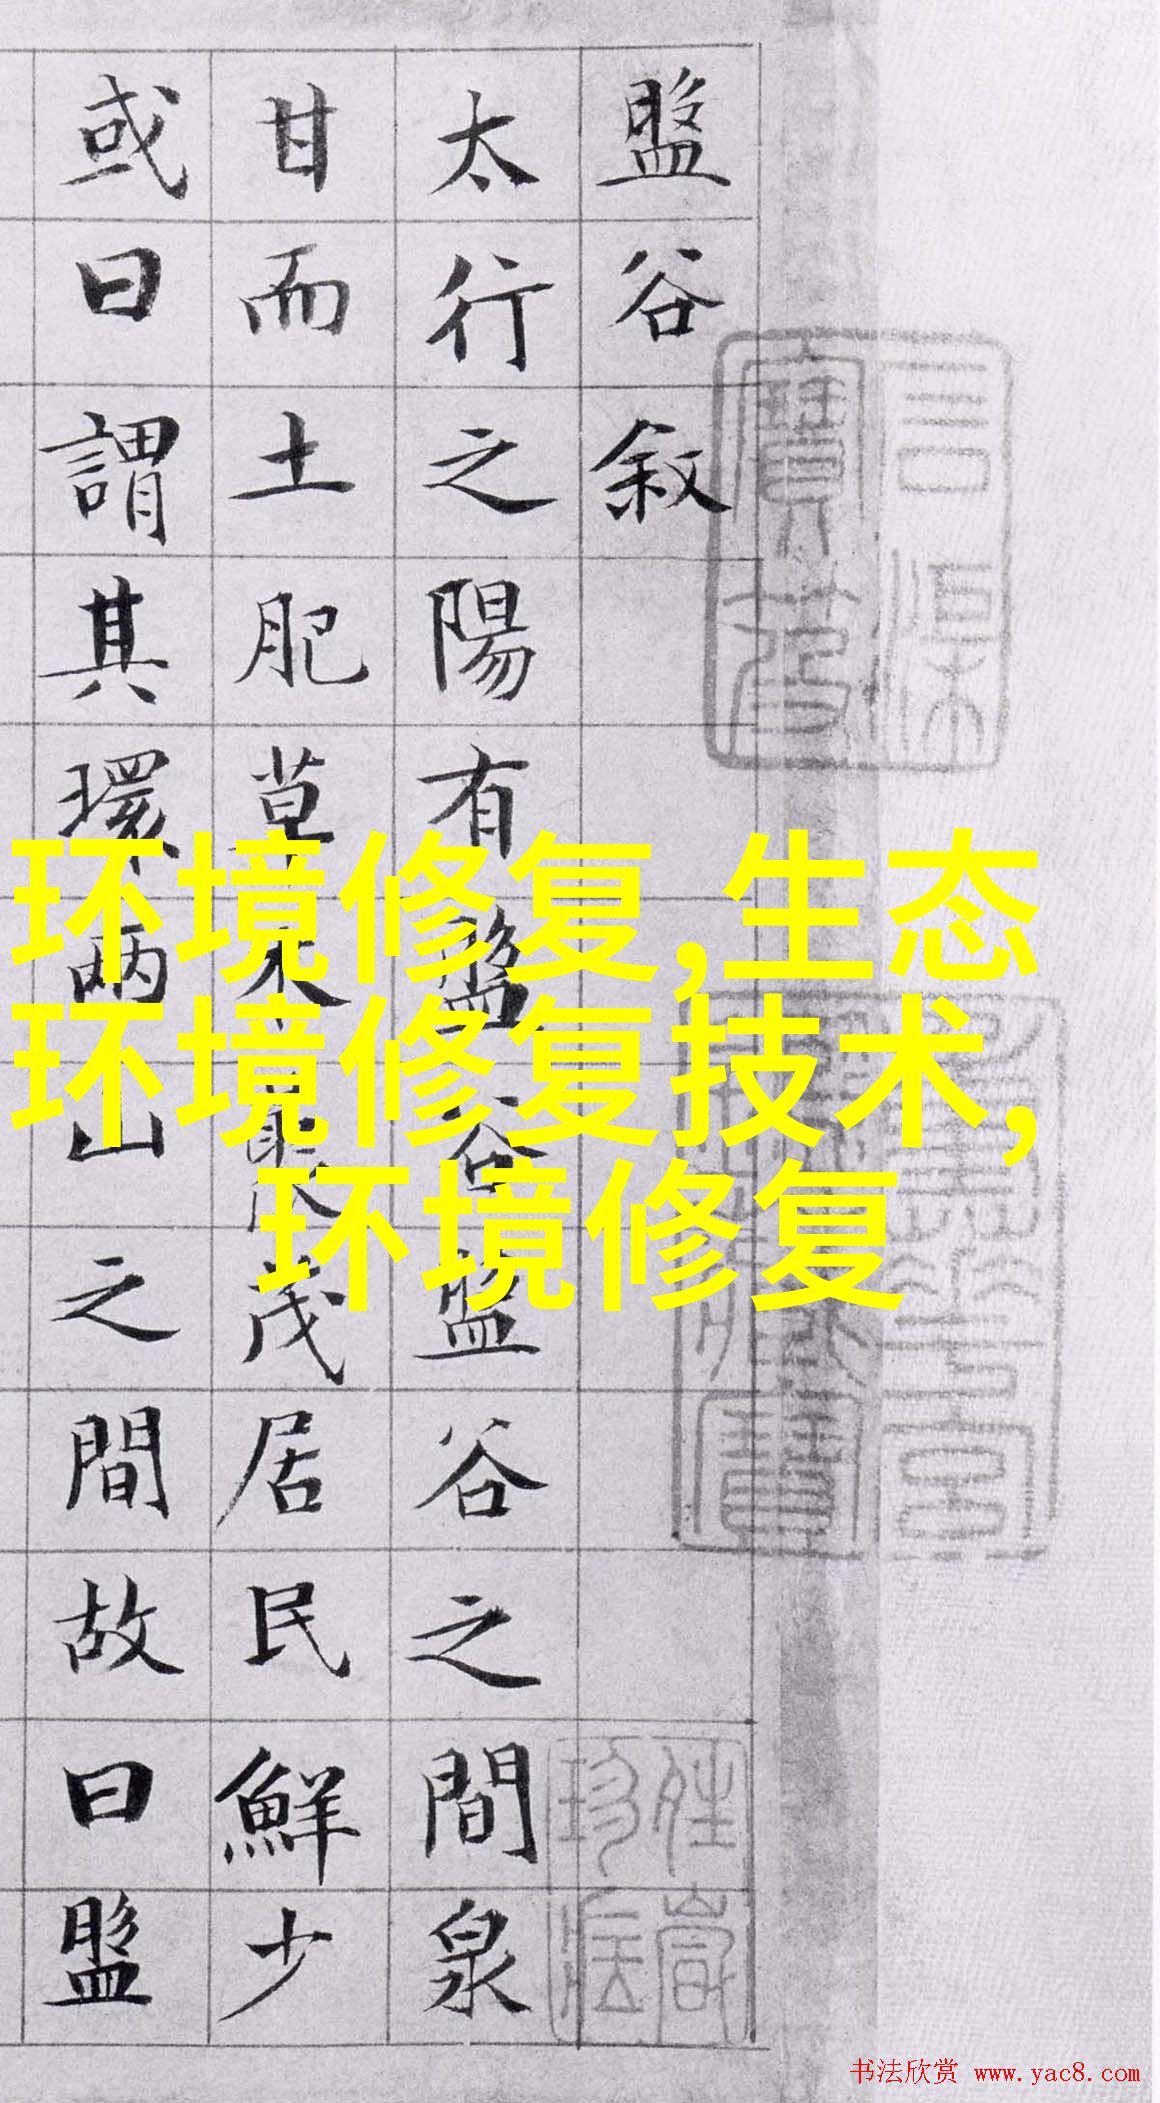 盤谷敘
太行之陽有盤谷盤谷之間泉
甘而土肥草木叢茂居民鮮少
或曰謂其環兩山之間故曰盤
环境修复,生态
环境修复技术,
环境修复
书法欣赏 www.yac8.com